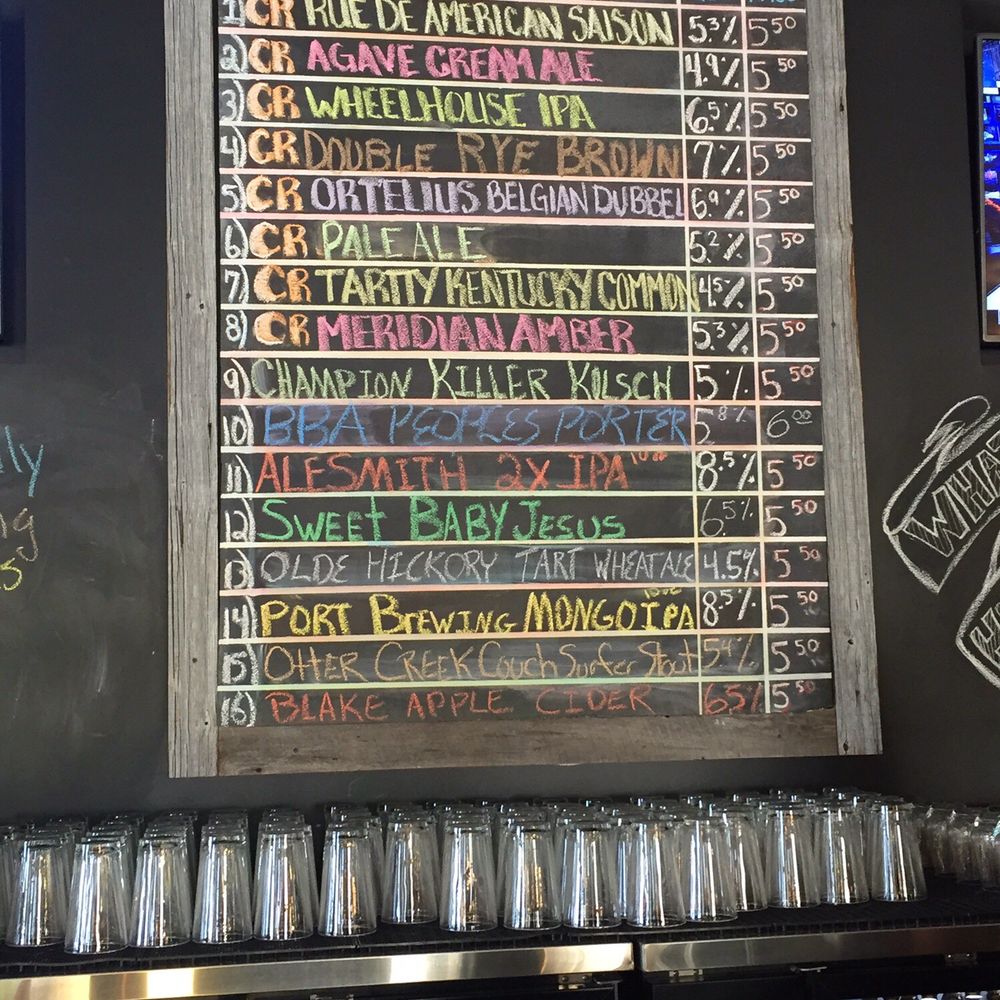 1) CR RUE DE AMERICAN SAISON 5.3% 5 50
2) CR AGAVE CREAM ALE 4.9% 5 50
3) CR WHEELHOUSE IPA 6.5% 5 50
4) CR DOUBLE RYE BROWN 7% 5 50
5) CR ORTELIUS BELGIAN DUBBEL 6.9% 5 50
6) CR PALE ALE 5.2% 5 50
7) CR TARTTY KENTUCKY COMMON 4.5% 5 50
8) CR MERIDIAN AMBER 5.3% 5 50
9) CHAMPION KILLER KOLSCH 5% 5 50
10) BBA PEOPLES PORTER 5.8% 6 00
11) ALESMITH 2X IPA 10oz 8.5% 5 50
12) SWEET BABY JESUS 6.5% 5 50
13) OLDE HICKORY TART WHEAT ALE 4.5% 5 50
14) PORT BREWING MONGO IPA 10oz 8.5% 5 50
15) OTTER CREEK Couch Surfer Stout 5.4% 5 50
16) BLAKE APPLE CIDER 6.5% 5 50